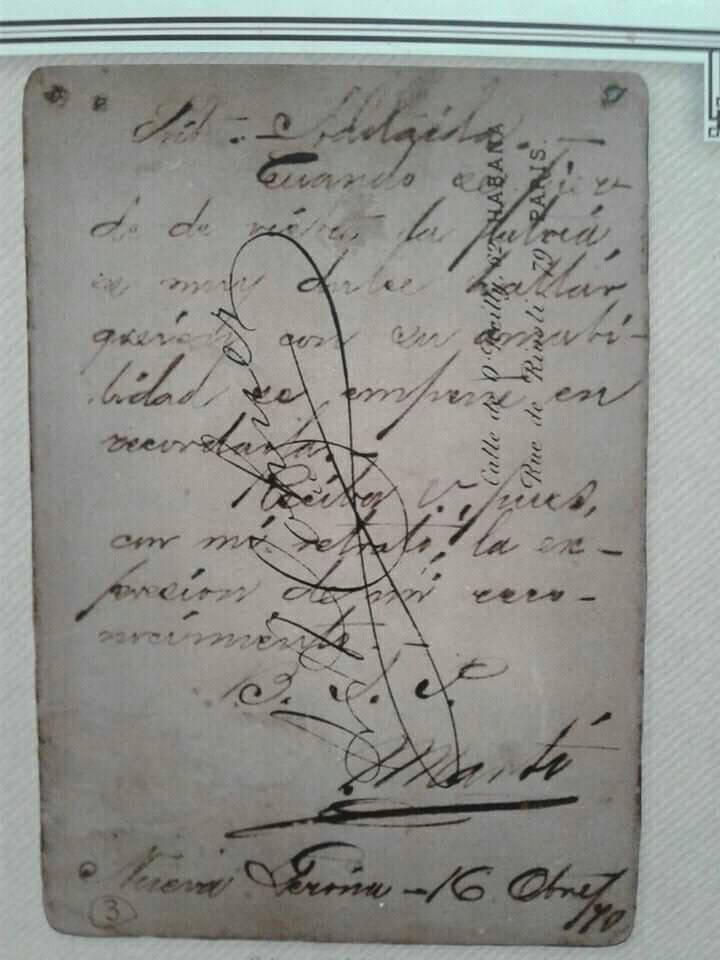 Srita. Adelaida. —
Cuando se pier-
de de vista la patria,
es muy dulce hallar
quien con su amabi-
bidad se empeñe en
recordarla.
Reciba V., pues,
con mi retrato, la ex-
presion de mi reco-
nocimiento. —
B. S. P.
J. Martí
Nueva Gerona — 16 Obre/70
3
Calle de O'Reilly, 62, HABANA
Rue de Rivoli, 79 PARIS.